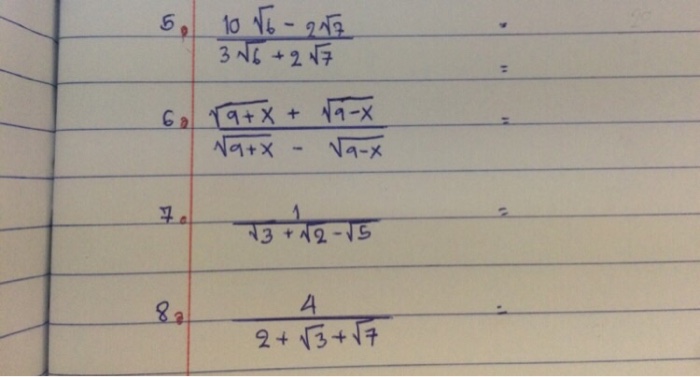 5. (10√6 - 2√7)/(3√6 + 2√7) =
6. (√(a+x) + √(a-x))/(√(a+x) - √(a-x)) =
7. 1/(√3 + √2 - √5) =
8. 4/(2 + √3 + √7) =